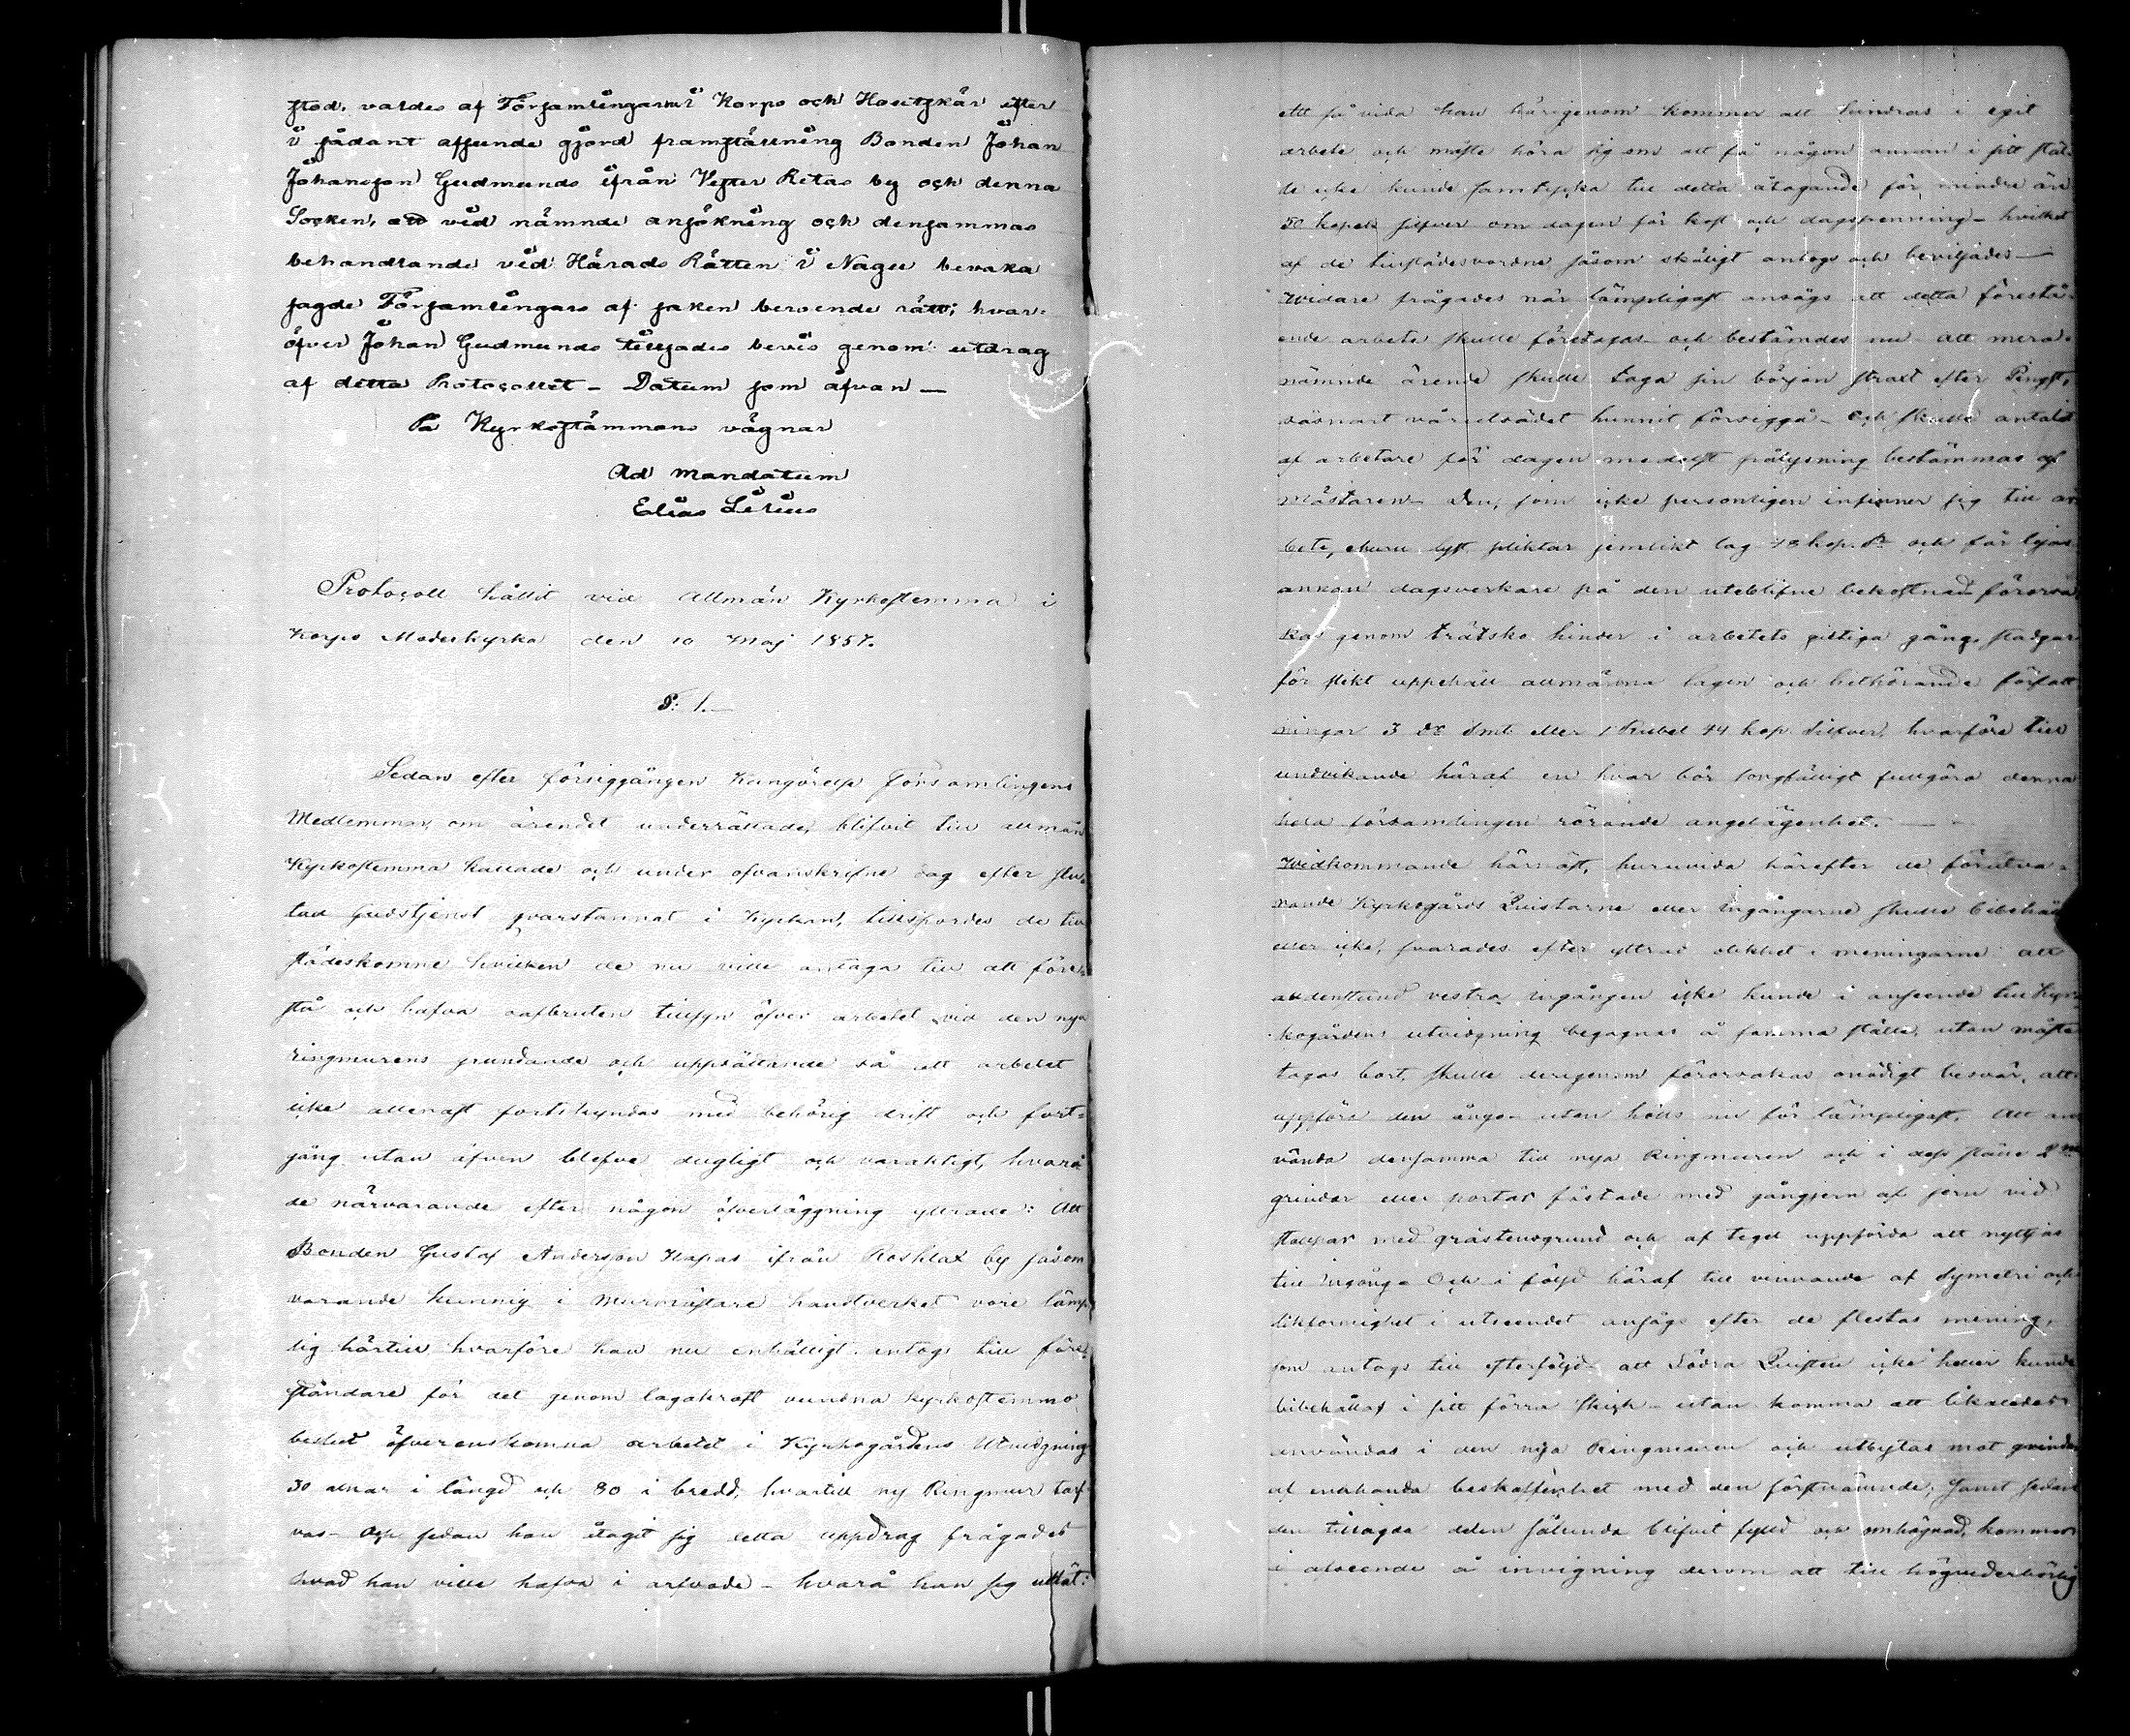 stod, valdes af Församlingarna i Korpo och Houtskär efter
i sådant afseende gjord framställning Bonden Johan
Johansson Gudmunds ifrån Vester Retas by och denna
Socken, att vid nämnde ansökning och densammas
behandlande vid Härads Rätten i Nagu bevaka
sagde Församlingars af saken beroende rätt; hvar-
öfver Johan Gudmunds tilljades bevis genom utdrag
af detta Protocollet – Datum som åfvan –
På Kyrkostämmans vägnar
Ad mandatum
Elias Sirius
Protocoll hållit vid Allmän Kyrkostemma i
Korpo Moderkyrka den 10 Maj 1857.
§: 1.–
Sedan efter försiggången Kungörelse Församlingens
Medlemmar, om ärendet underrättade, blifvit till allmän
Kyrkostemma kallade och under ofvanskrifne dag efter slu-
tad Gudstjenst qvarstannat i Kyrkan, tillspordes de till
städeskomne hvilken de nu ville antaga till att före-
stå och hafva oafbruten tillsyn öfver arbetet vid den nya
ringmurens grundande och uppsättande så att arbetet
icke allenast fortskyndas med behörig drift och fort-
gång utan äfven blefve dugligt och varaktigt, hvarå
de närvarande efter någon öfverläggning yttrade: Att
Bonden Gustaf Andersson Kapas ifrån Rosklax by såsom
varande kunnig i Murmästare handtverket vore lämp-
lig härtill hvarföre han nu enhälligt antogs till före-
ståndare för det genom lagakraft vundna Kyrkostemmo
beslut öfverenskomna arbetet i Kyrkogårdens Utvidgning
30 alnar i längd och 80 i bredd, hvartill ny Ringmur tarf-
vas – Och sedan han åtagit sig detta uppdrag frågades
hvad han ville hafva i arfvode – hvarå han sig utlät:
Att så vida han härigenom kommer att hindras i egit
arbete och måste höra sig om att få någon annan i sitt stäl-
le icke kunde samtycka till detta åtagande för mindre än
50 kopek silfver om dagen för kost och dagspenning – hvilket
af de tillstädesvordne såsom skäligt antogs och beviljades –
Widare frågades när lämpligast ansågs att detta förestå-
ende arbete skulle företagas och bestämdes nu att mera-
nämnde ärende skulle taga sin början straxt efter Pingst,
såsnart vårutsädet hunnit försiggå – Och skulle antalet
af arbetare för dagen medelst pålysning bestämmas af
Mästaren – Den, som icke personligen infinner sig till ar-
bete, ehuru lyst, pliktar jemlikt lag 48 kop. Sr och får lejas
annan dagsverkare på den uteblifne bekostnad förorsa-
kas genom trätsko hinder i arbetets giltiga gång, stadgar
för slikt uppehåll allmänna lagen och hithörande författ-
ningar 3 Dr Smt eller 1 Rubel 44 kop. Silfver, hvarföre till
undvikande häraf en hvar bör sorgfälligt fullgöra denna
hela församlingen rörande angelägenhet. –
Widkommande härnäst, huruvida härefter de förutva-
rande Kyrkogårds Luistarne eller Ingångarne skulle bibehållas
eller icke, svarades efter yttrad olikhet i meningarne att
alldenstund vestra ingången icke kunde i anseende till Kyr-
kogårdens utvidgning begagnas å samma ställe, utan måste
tagas bort, skulle derigenom förorsakas onödigt besvär, att
uppföra den ånyo utan hölls nu för lämpligast, Att an-
vända densamma till nya Ringmuren och i dess ställe 2ne
grindar eller portar fästade med gångjern af jern vid
stolpar med gråstensgrund och af tegel uppförda att nyttjas
till Ingång – Och i följd häraf till vinnande af Symetri och
likformighet i utseendet ansågs efter de flestas mening,
som antogs till efterföljd att Södra Luisten icke heller kunde
bibehållas i sitt förra skick – utan komma att likaledes
användas i den nya Ringmuren och utbytas mot grindar
af enahanda beskaffenhet med den förstnämnde, Samt sedan
den tillagda delen sålunda blifvit fylld och omhägnad, kommer
i afseende å invigning derom att till högvederbörlig